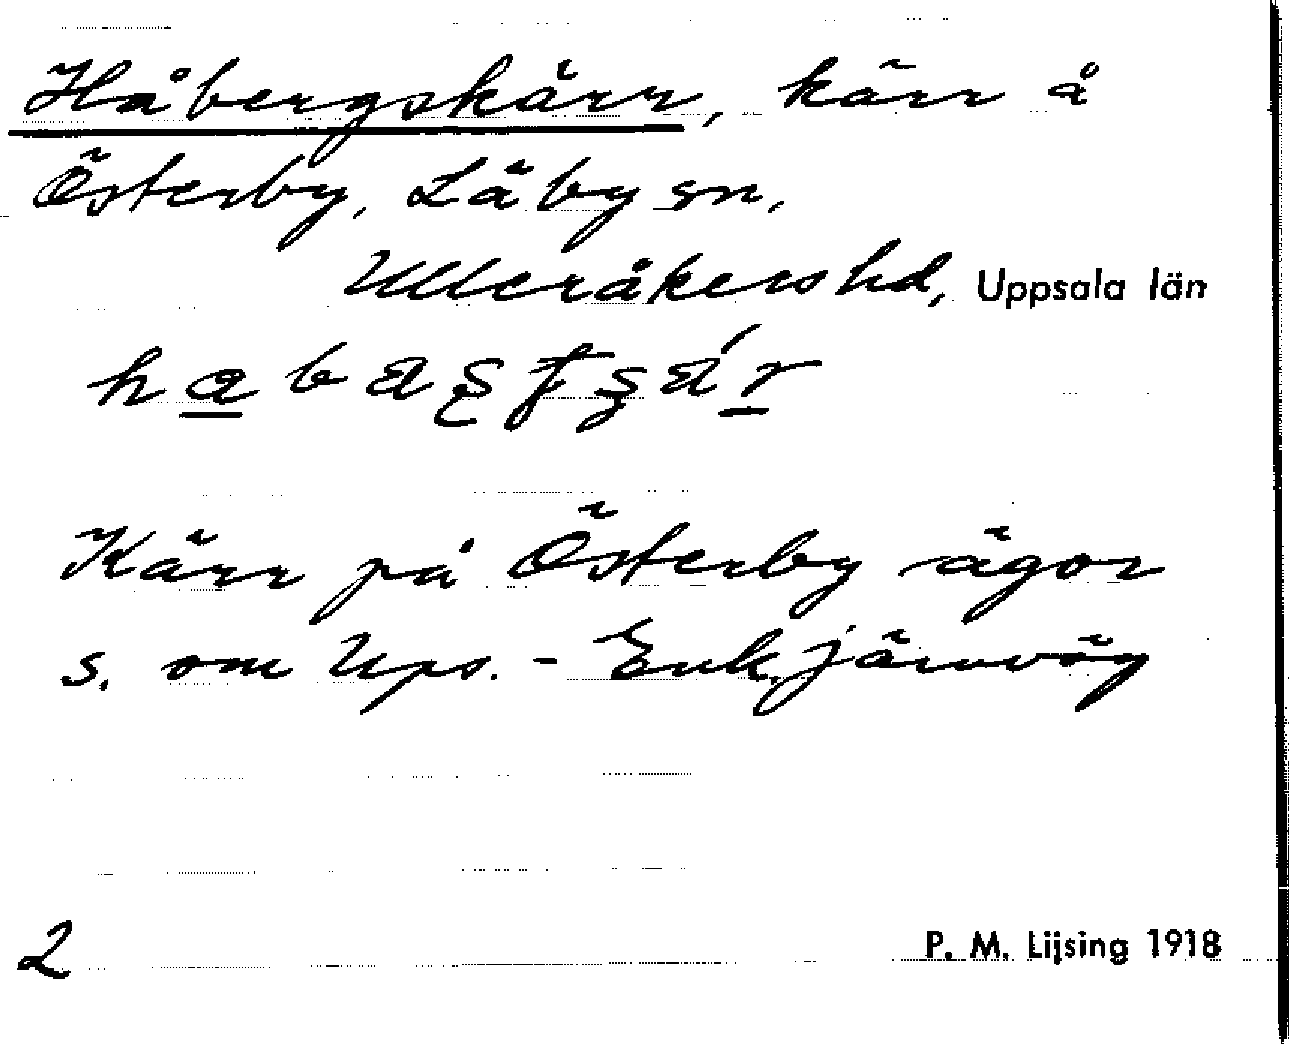 Håbergskärr, kärr å
Österby, Läby sn,
Ulleråkers hd, Uppsala län
Kärr på Österby ägor
s. om Ups. - Enk. järnväg
2
P. M. Lijsing 1918